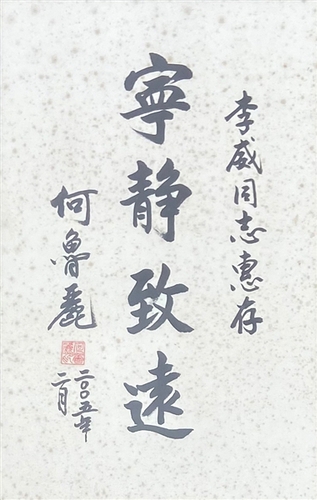 李威同志惠存
寧静致遠
何魯麗
二〇〇五年
二月